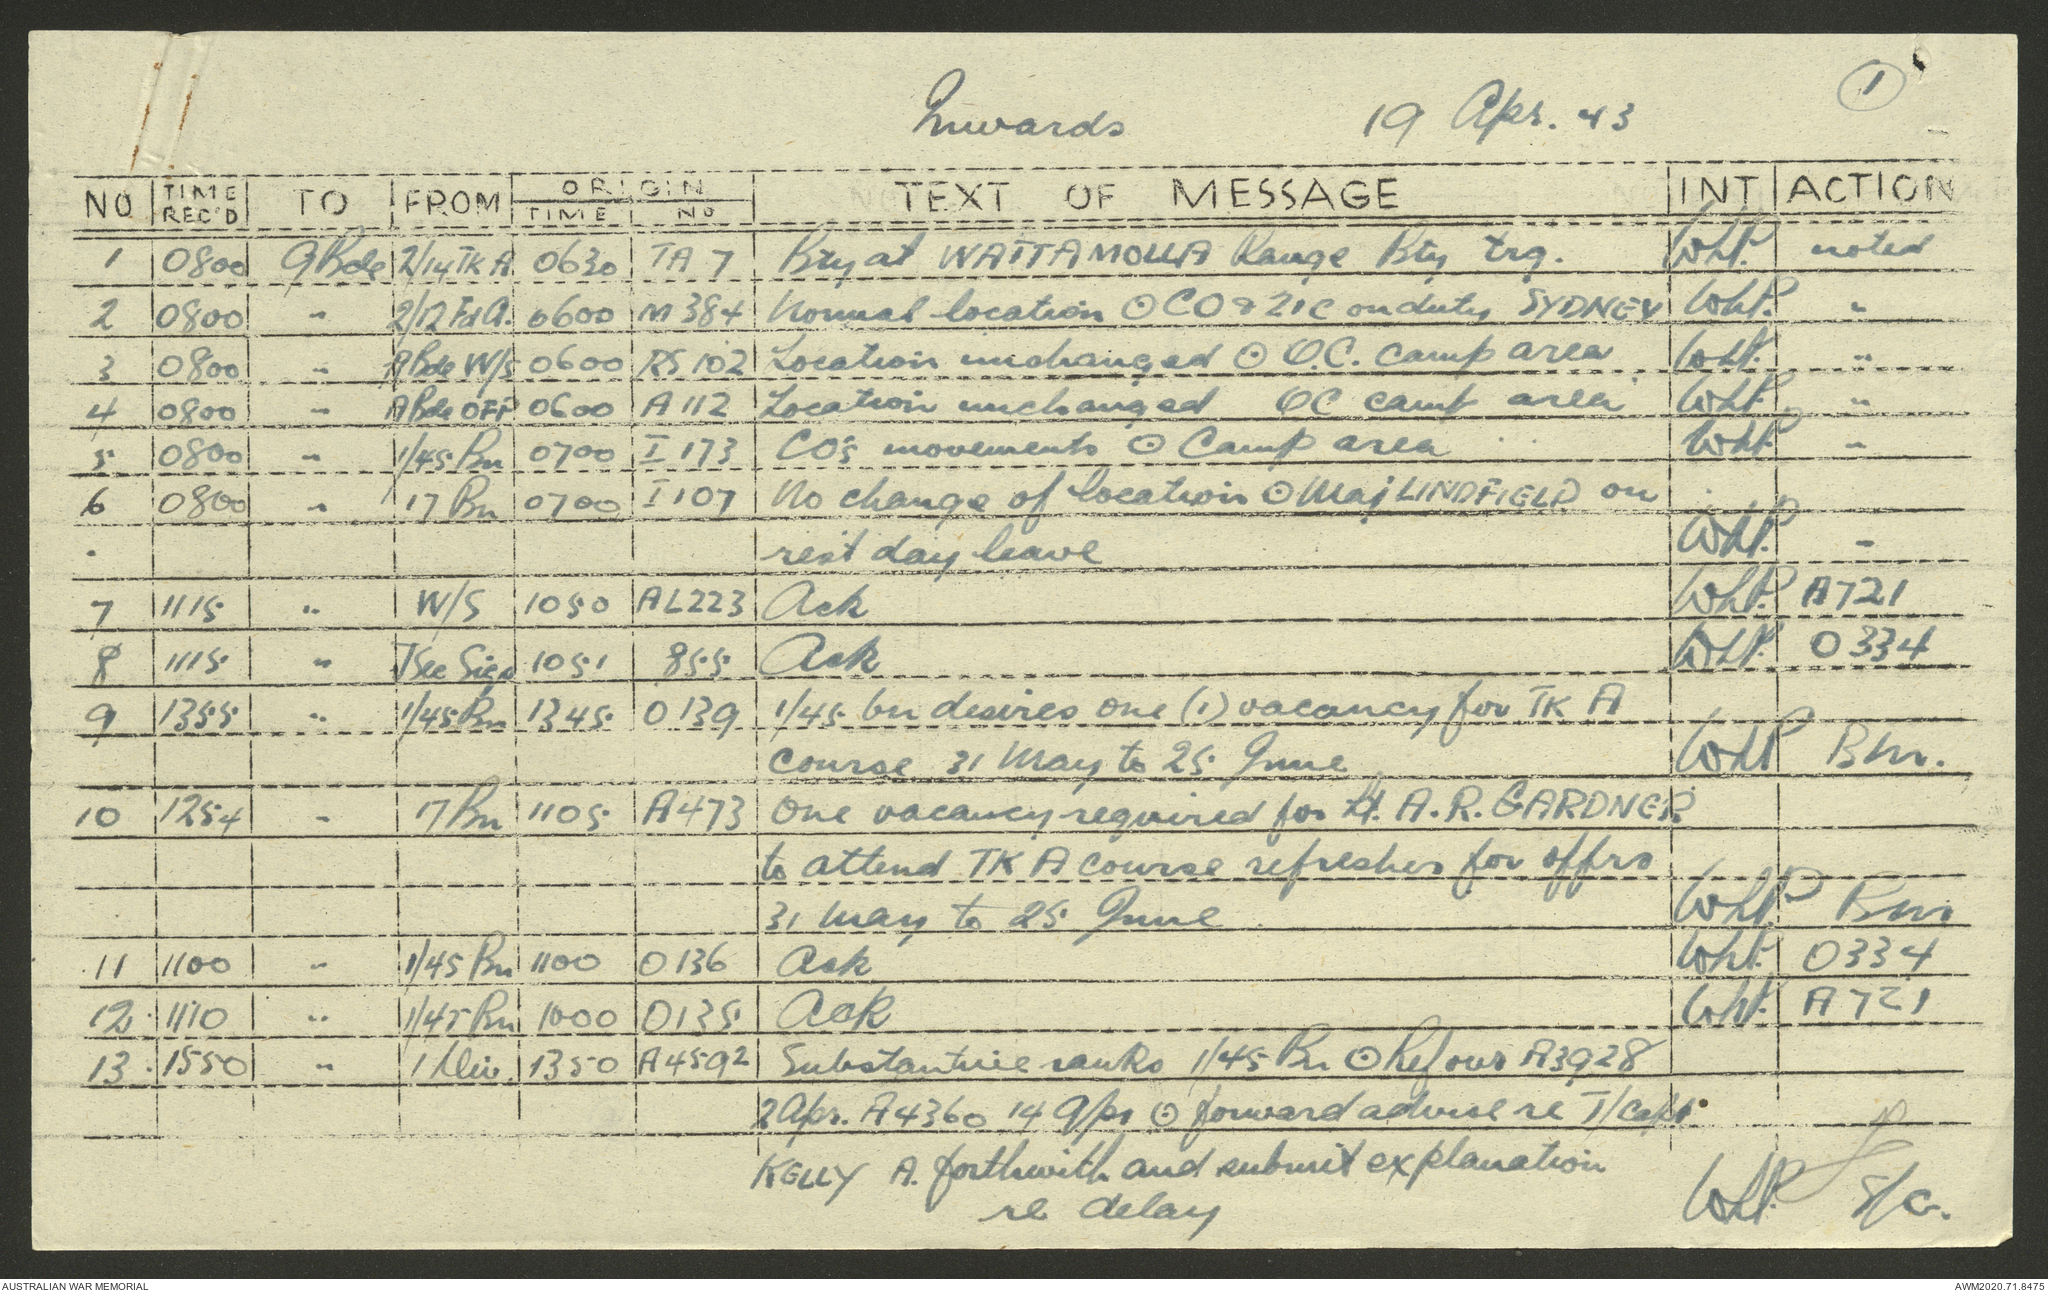 1
Inwards 19 Apr. 43
NO TIME REC'D TO FROM ORIGIN TIME NO TEXT OF MESSAGE INT ACTION
1 0800 9 Bde 2/14 TK A 0630 TA 7 Bty at WATTAMOLLA Range Bty trg. WhP. noted
2 0800 " 2/12 Fd A. 0600 M 384 Normal location ⊙ CO & 2IC on duty SYDNEY WhP. "
3 0800 " 9 Bde W/S 0600 RS 102 Location unchanged ⊙ O.C. camp area WhP. "
4 0800 " 9 Bde OFP 0600 A 112 Location unchanged OC camp area WhP. "
5 0800 " 1/45 Bn 0700 I 173 CO's movements ⊙ Camp area WhP "
6 0800 " 17 Bn 0700 I 107 No change of location ⊙ Maj LINDFIELD on
rest day leave WhP. "
7 1115 " W/S 1050 AL223 Ack WhP. A721
8 1115 " J Sec Sigs 1051 855 Ack WhP. O334
9 1355 " 1/45 Bn 1345 O139 1/45 bn desires one (1) vacancy for TK A
course 31 May to 25 June WhP Bm.
10 1254 " 17 Bn 1105 A473 One vacancy required for Lt. A.R. GARDNER
to attend TK A course refresher for offrs
31 May to 25 June WhP. Bm
11 1100 " 1/45 Bn 1100 O136 Ack WhP. O334
12 1110 " 1/45 Bn 1000 O135 Ack WhP. A721
13 1550 " 1 Div. 1350 A4592 Substantive ranks 1/45 Bn ⊙ Ref our A3928
2 Apr. A4360 14 Apr ⊙ forward advise re T/Capt
KELLY A. forthwith and submit explanation
re delay WhP. S/C.
AUSTRALIAN WAR MEMORIAL AWM2020.71.8475